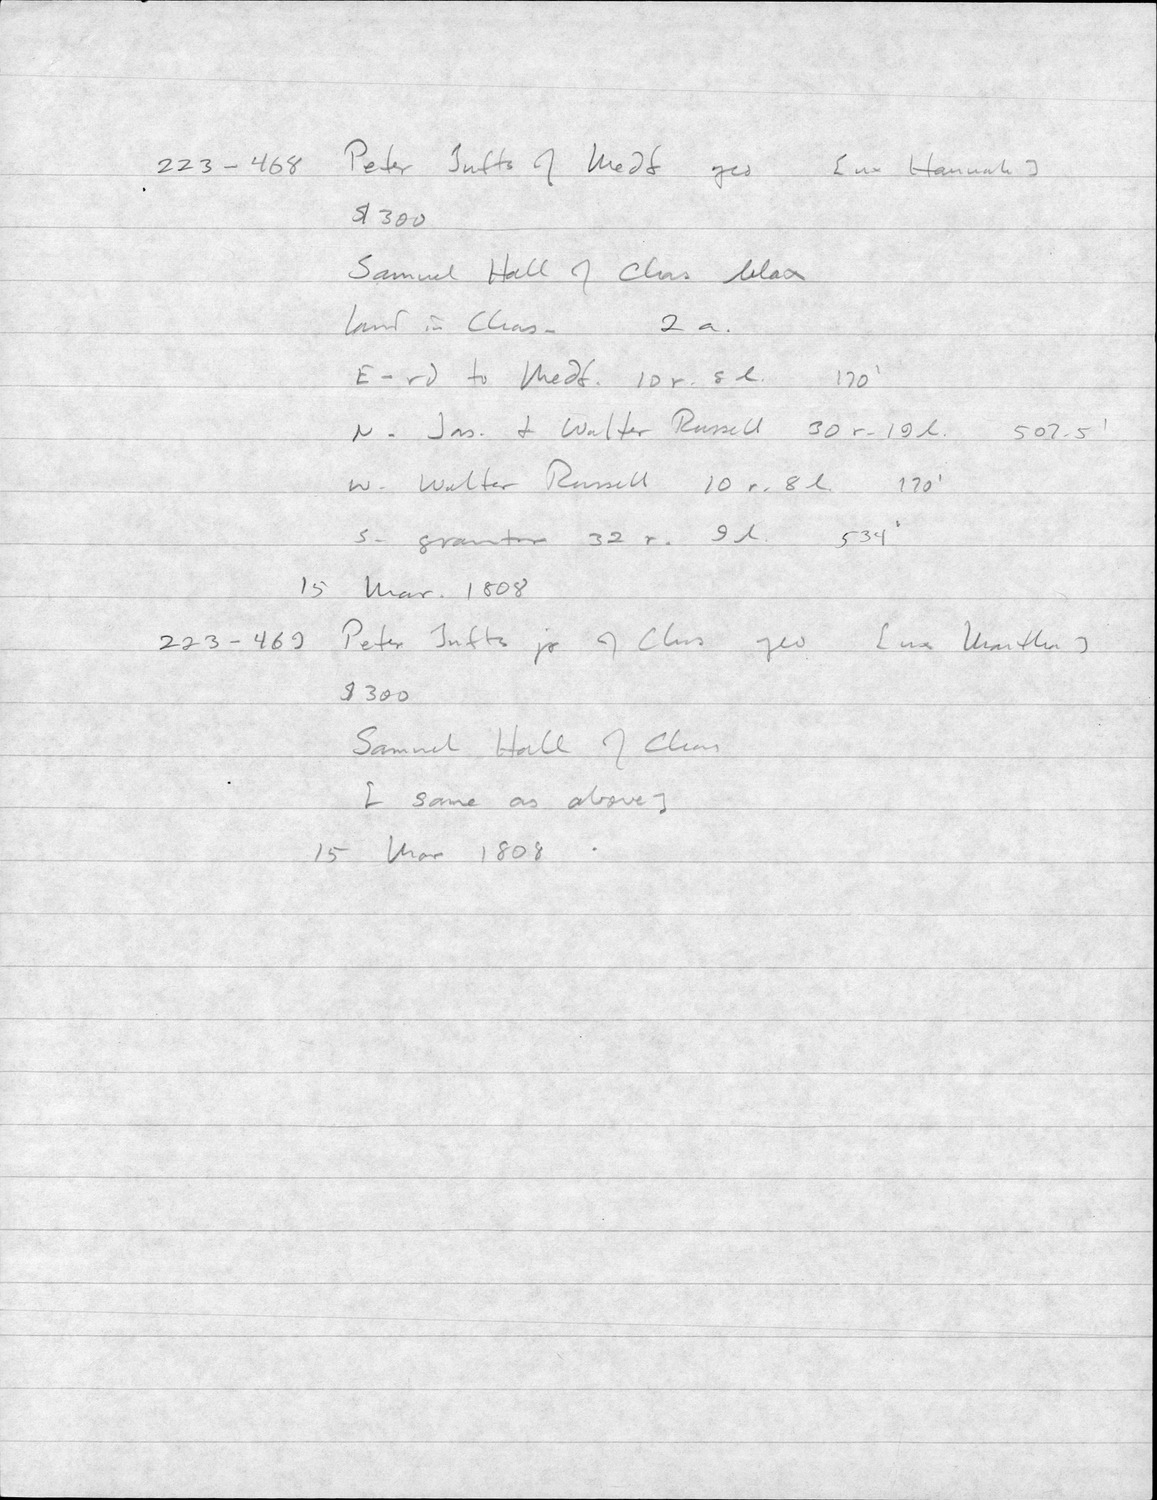 223-468 Peter Tufts of Medf yeo [ux Hannah]
$300
Samuel Hall of Chas
land in Chas- 2 a.
E-rd to Medf. 10 r. 8 l. 170'
N- Jas. & Walter Russell 30 r-19 l. 507.5'
W- Walter Russell 10 r. 8 l. 170'
S- grantor 32 r. 9 l. 534'
15 Mar. 1808
223-469 Peter Tufts jr of Chas yeo [ux Martha]
$300
Samuel Hall of Chas
[same as above]
15 Mar 1808